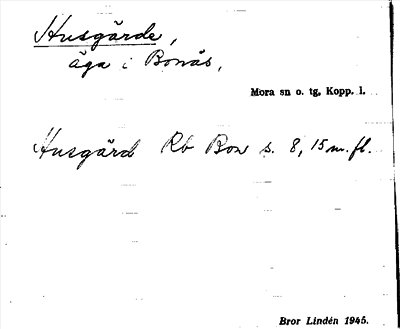 Husgärde,
äga i Bonäs,
Mora sn o. tg, Kopp. l.
Husgärd Rb Bon s. 8, 15 m. fl.
Bror Lindén 1945.